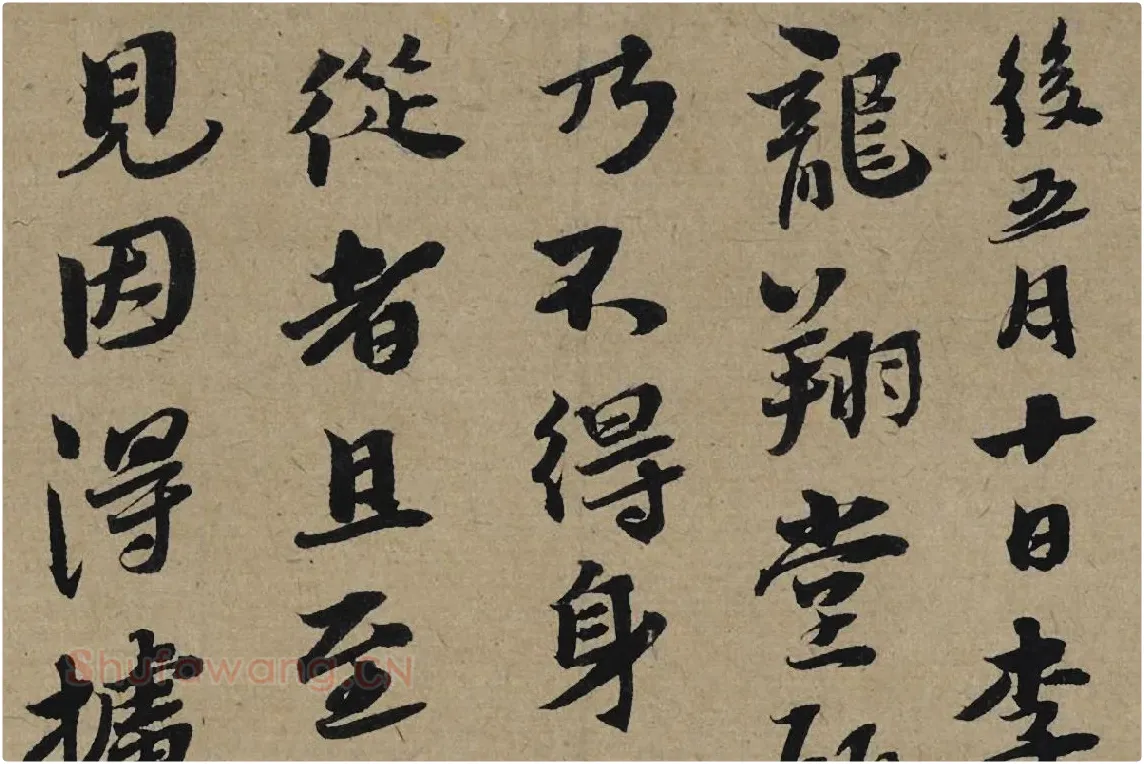 後五月十日李
龍翔堂
乃不得身
從者且至
見因得攄
Shufawang.CN